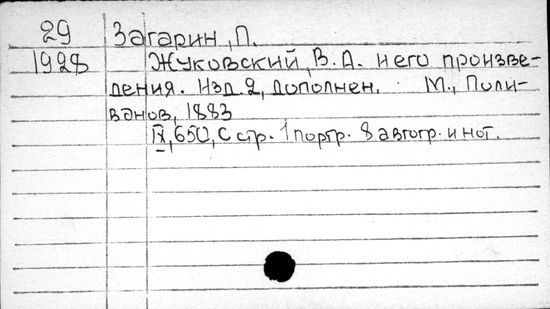 29 Загарин, П.
1928 Жуковский, В.А. и его произве-
дения. Изд. 2, дополнен. М., Поли-
ванов, 1883
IX, 650, С стр. 1 портр. 8 автогр. и нот.